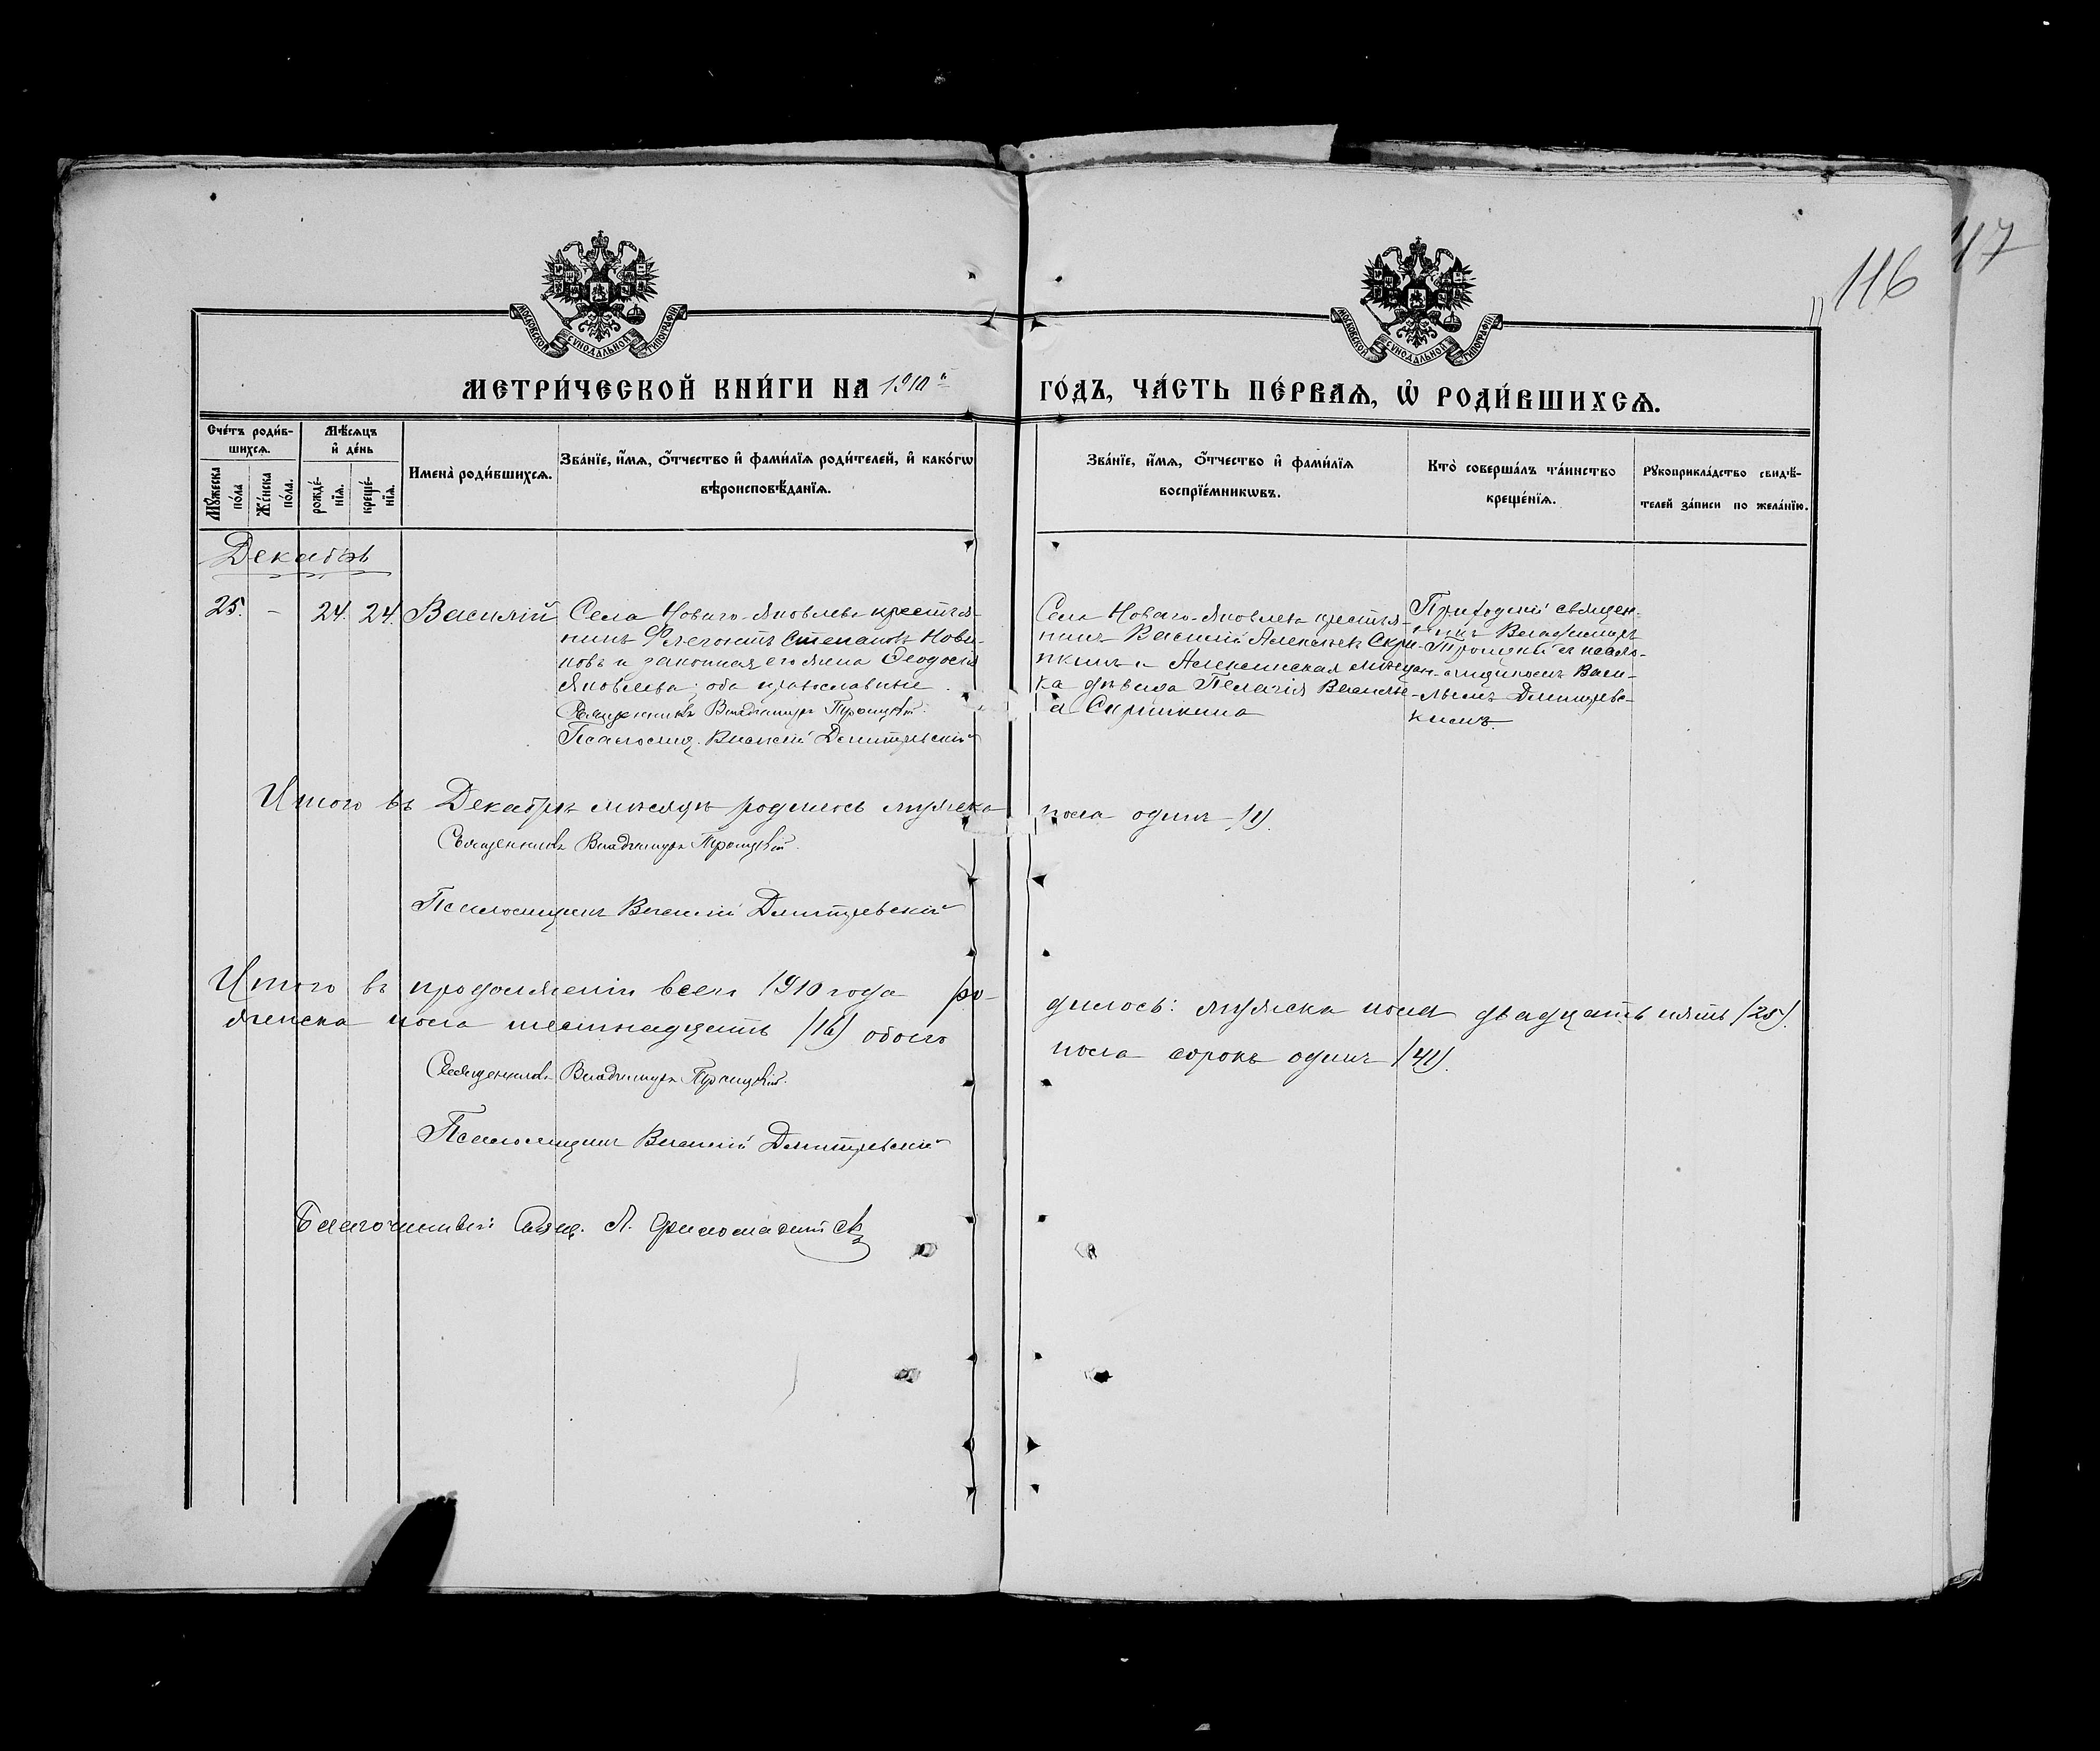 116
117
МОСКОВСКОЙ СУНОДАЛЬНОЙ ТИПОГРАФІИ
МОСКОВСКОЙ СУНОДАЛЬНОЙ ТИПОГРАФІИ
МЕТРИ́ЧЕСКОЙ КНИ́ГИ НА 1910й
ГО́ДЪ, ЧА́СТЬ ПЕ́РВАѦ, Ѡ҆ РОДИ́ВШИХСѦ.
Сче́тъ роди́в-
шихсѧ.
Мꙋ́жеска по́ла
Же́нска по́ла.
Мѣ́сѧцъ
и҆ де́нь
рожде́-
нїѧ.
креще́-
нїѧ.
Имена̀ роди́вшихсѧ.
Зва́нїе, и҆́мѧ, ѻ҆́тчество и҆ фами́лїѧ роди́телей, и҆ како́гѡ
вѣроисповѣ́данїѧ.
Зва́нїе, и҆́мѧ, ѻ҆́тчество и҆ фами́лїѧ
воспрїе́мникѡвъ.
Кто̀ соверша́лъ та́инство
креще́нїѧ.
Рꙋкоприкла́дство свидѣ́-
телей за́писи по жела́нїю.
Декабрь
25. - 24. 24. Василій
Села Новаго-Яковлева крестья-
нинъ Флегонтъ Степановъ Нови-
ковъ и законная его жена Ѳеодосія
Яковлева; оба православные.
Священникъ Владимиръ Троицкій.
Псаломщ. Василій Дмитревскій
Села Новаго-Яковлева крестья-
нинъ Василій Алексѣевъ Скри-
пкинъ и Алексинская мѣщан-
ка дѣвица Пелагія Василье-
а Скрипкина
Приходскій священ-
никъ Владимиръ
Троицкій съ псало-
мщикомъ Васи-
ліемъ Дмитревс-
кимъ.
Итого въ Декабрѣ мѣсяцѣ родилось мужеска
пола одинъ (1).
Священникъ Владимиръ Троицкій.
Псаломщикъ Василій Дмитревскій
Итого въ продолженіи всего 1910 года ро-
дилось: мужска пола двадцать пять (25).
женска пола шестнадцать (16) обоего
пола сорокъ одинъ (41).
Священникъ Владимиръ Троицкій.
Псаломщикъ Василій Дмитревскій
Благочинный Свящ.